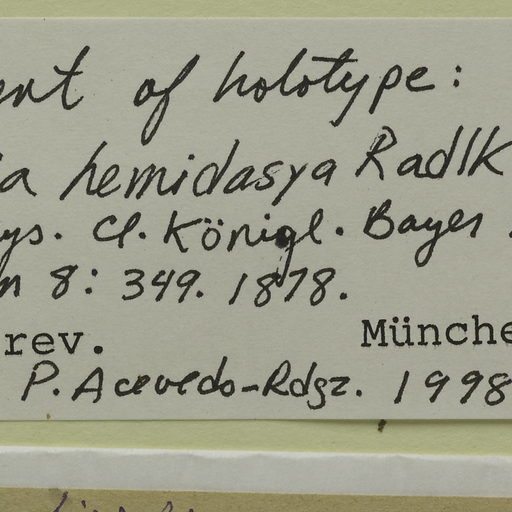 ent of holotype:
a hemidasya Radlk
ys. Cl. Königl. Bayer
n 8: 349. 1878.
rev. Münche
P. Acevedo-Rdgz. 1998